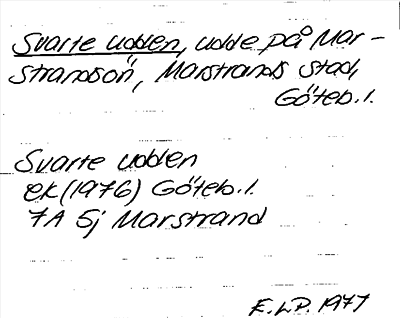 Svarte udden, udde på Mar-
strandsön, Marstrands stad,
Göteb. l.
Svarte udden
ek (1976) Göteb. l.
7A 5j Marstrand
F. L.P. 1977